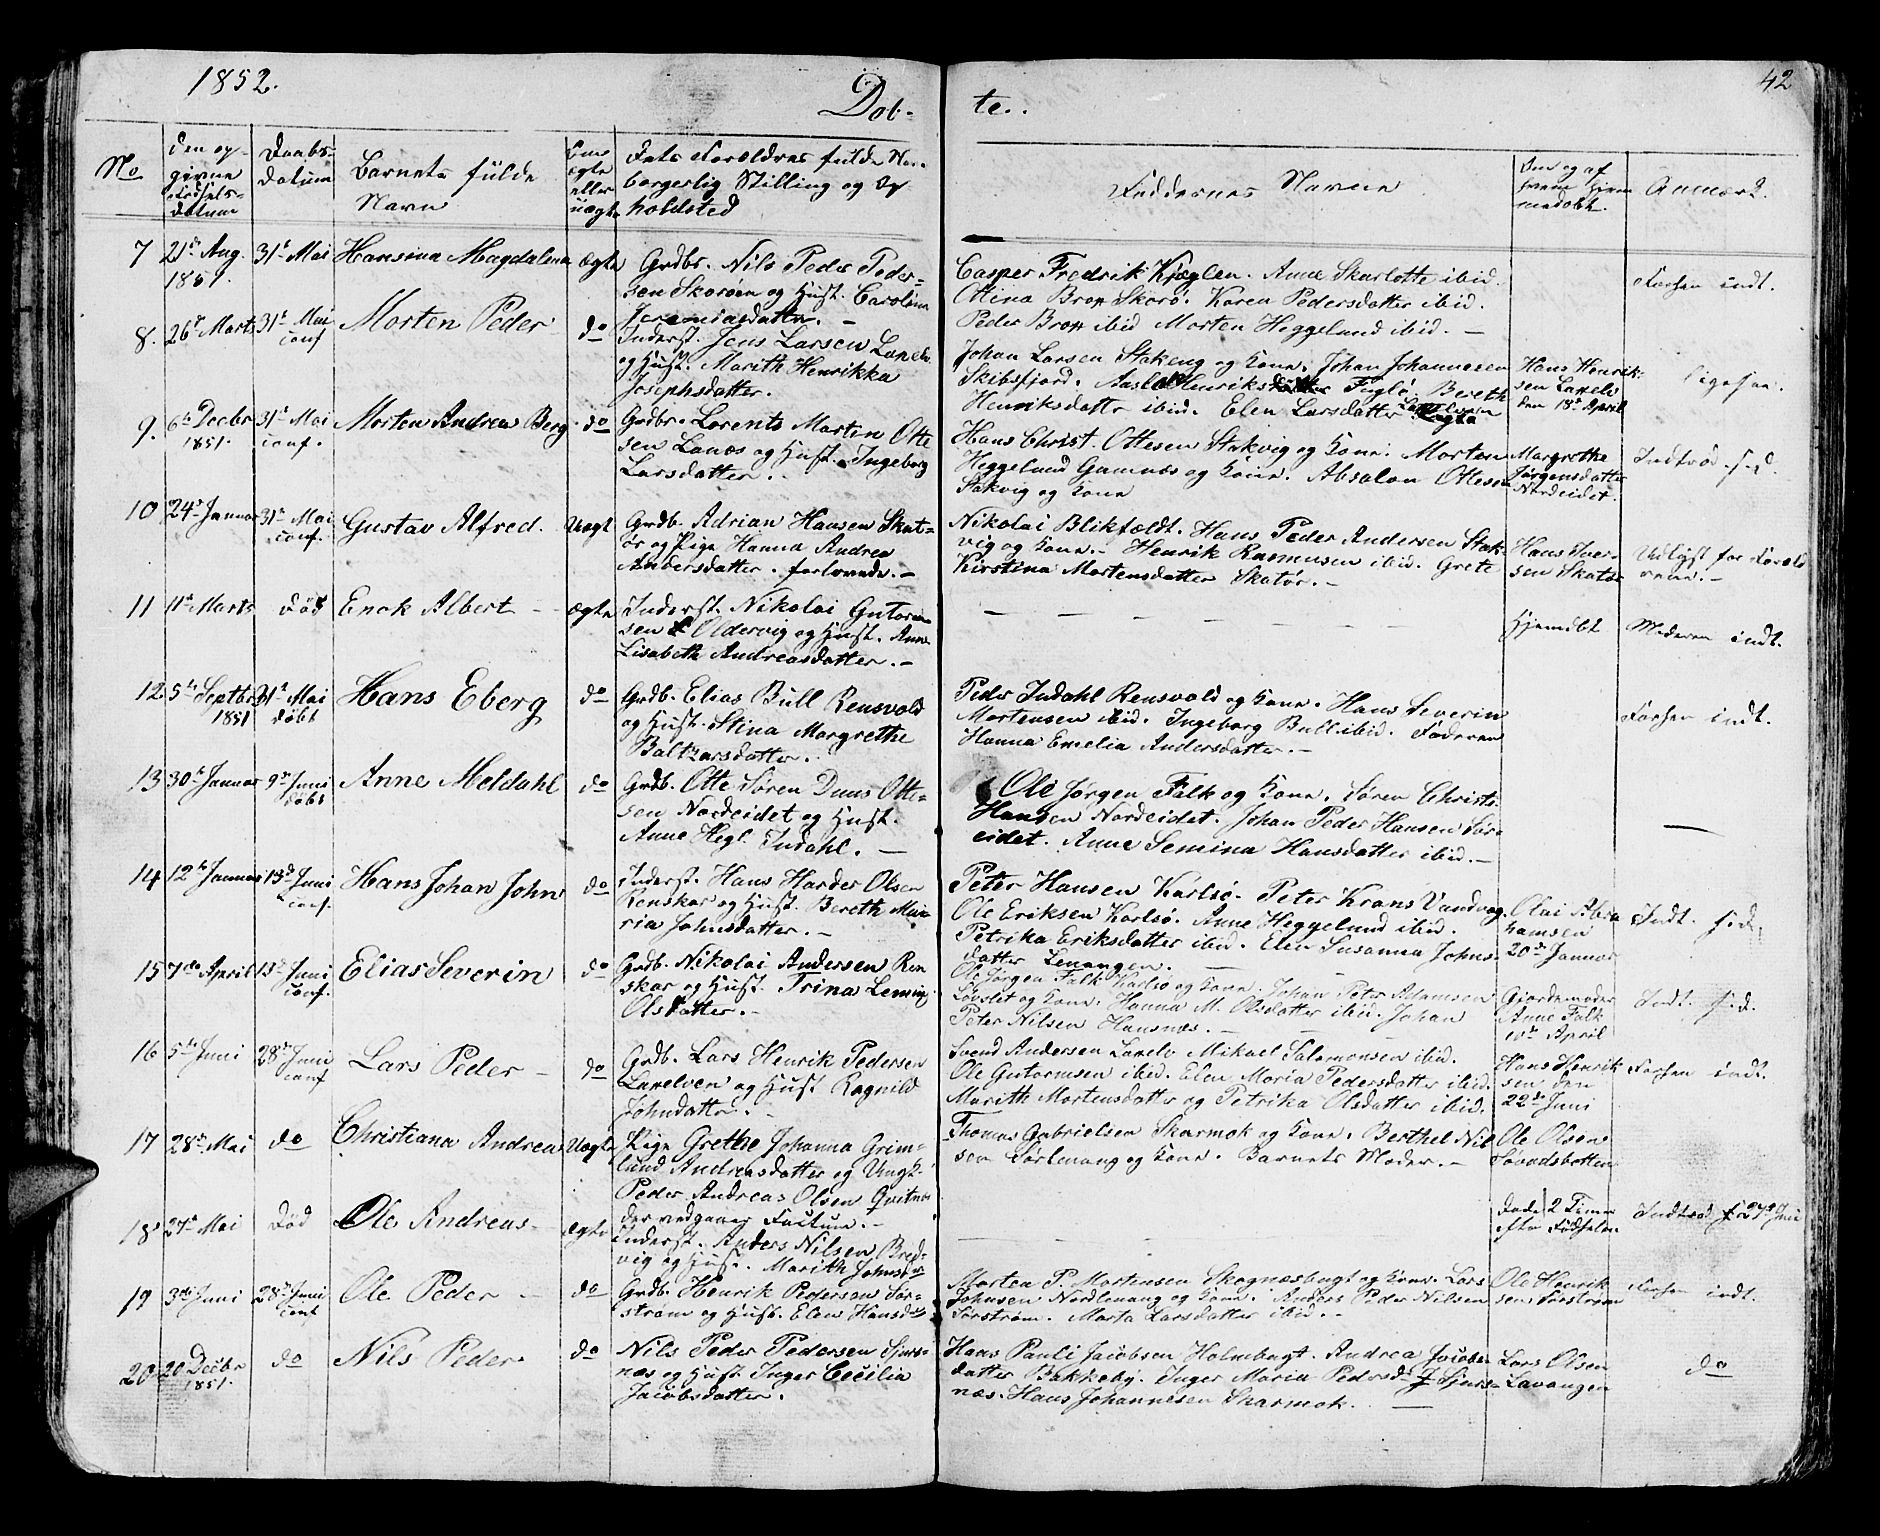 1852.
Dob-
te.
42
No
den op-
givne
Fødsels-
datum
Daabs-
datum
Barnets fulde
Navn
ægte
eller
uægte
Dets Forældres fulde Nav
borgerlig Stilling og Op
holdsted
Faddernes Navne
Naar og af
hvem hjem
medøbt.
Anmærk.
7 21de Aug. 31te Mai Hansina Magdalena ægte Grdbr. Nils Peder Peder-
1851.
sen Skorøen og Hust. Carolina
Jeremiasdatter. –
Casper Fredrik Kjeglen. Anne Skarlotte ibid.
Otina Brox Skorø. Karen Pedersdatter ibid.
Peder Brox ibid Morten Heggelund ibid. –
Forsen indt.
8. 26de Marts 31te Mai Morten Peder do Inderst. Jens Larsen Lanelv
conf
og Hust. Marith Henrikka
Josephsdatter.
Johan Larsen Stakeng og Kone. Johan Johannesen
Skibsfjord. Henriksdatter Fuglø Bereth
Henriksdatter ibid. Elen Larsdatter
Hans Henrik-
sen Lanelv
den 18de April
ligesaa.
9. 6te Decbr 31te Mai Morten Andreas Berg do Grdbr. Lorents Martin Otte
1851. conf.
sen Lanæs og Hust. Ingeborg
Larsdatter.
Hans Christ. Ottesen Stakvig og Kone. Morten
Heggelund Gamnæs og Kone. Absalon Ottesen
Stakvig og Kone
Margrethe
Jørgensdatter
Nordeidet.
Indtrød. s. d.
10 24de Januar 31te Mai Gustav Alfred. Uægte Grdb. Adrian Hansen Skat-
conf.
ør og Pige Hanna Andrea
Andersdatter. forlovede. –
Nikolai Blikfeldt. Hans Peder Andersen Stak-
vig og Kone. – Henrik Rasmussen ibid. Grete
Kirstina Mortensdatter Skatør. –
Hans Iver-
sen Skatør
Udlyst for Foræld
rene. –
11 11te Marts Død Enok Albert – ægte Inderst. Nikolai Gutorm-
sen Oldervig og Hust. Anne
Lisabeth Andreasdatter. –
Hjemdbt
Moderen indt.
12. 5te Septbr 31te Mai Hans Eberg do Grdb. Elias Bull Rensvold
1851 døbt
og Hust. Stina Margrethe
Baltzarsdatter.
Peder Indahl Rensvold og Kone. Hans Severin
Mortensen ibid. Ingeborg Bull ibid. Faderen
Hanna Emelia Andersdatter. –
Forsen indt.
13 30te Januar 9de Juni Anne Meldahl do Grdb. Otte Søren Duus Otte-
døbt
sen Nordeidet og Hust.
Anne Hegl. Indahl. –
Ole Jørgen Falk og Kone. Søren Christ.
Hansen Nordeidet. Johan Peder Hansen Sør-
eidet. Anne Semina Hansdatter ibid. –
–
14 12te Januar 13de Juni Hans Johan John do Inderst. Hans Harder Olsen
conf.
Renskar og Hust. Bereth Ma-
ria Johnsdatter. –
Peter Hansen Karlsø. Peter Krans Vandvag.
Ole Eriksen Karlsø. Anne Heggelund ibid.
Petrika Eriksdatter ibid. Elen Susanna Johns-
datter Lenangen. –
Olai Abra
hamsen
20de Januar
Indt. s. d.
15 7de April 13de Juni Elias Severin do Grdb. Nikolai Andersen Ren
conf.
skar og Hust. Trina Leming
Olsdatter. –
Ole Jørgen Falk Karlsø og Kone. Johan Peter Adamsen
Løvslet og Kone. Hanna M. Olsdatter ibid. Johan
Peter Nilsen Hansnæs. –
Gjordemoder
Anne Falk
10de April
Indt. s. d.
16 5te Juni 28de Juni Lars Peder – do Grdb. Lars Henrik Pedersen
conf
Lanelven og Hust Ragnild
Johndatter. –
Svend Andersen Lanelv Mikael Salamonsen ibid.
Ole Gutormsen ibid. Elen Maria Pedersdatter ibid.
Marith Mortensdatter og Petrika Olsdatter ibid.
Hans Henrik
sen den
22de Juni
Forsen indt.
17 28de Mai do Christiana Andrea Uægte Pige Grethe Johanna Grim-
lund Andreasdatter og Ungk.
Peder Andreas Olsen Qvitnæs
der vedgaaer Factum. –
Thomas Gabrielsen Skarmok og Kone. Berthel Nil
sen Sørlenang og Kone. Barnets Moder. –
Ole Olsen
Søvedsbotten
18 27de Mai Død Ole Andreas – ægte Inderst. Anders Nilsen Bred-
vig og Hust. Marith Johnsdtr
Døde 2 Timer
efter Fødselen
Indtrød d 27de Juni
19 3die Juni 28de Juni Ole Peder – do Grdb. Henrik Pedersen Sør-
conf
strøm og Hust. Elen Hansdtr
Morten P. Mortensen Skognæsbugt og Kone. Lars
Johnsen Nordlenang og Kone. Anders Peder Nilsen
Sørstrøm. Marta Larsdatter ibid. –
Ole Henrik
sen Sørstrøm
Forsen indt.
20 20 Decbr do Nils Peder do Nils Peder Pedersen Sjurs-
1851.
næs og Hust. Inger Cecilia
Jacobsdatter.
Hans Pauli Jacobsen Holmbugt. Andrea Jacobs-
datter Bakkeby. Inger Maria Pedersd. Sjurs-
næs. Hans Johannesen Skarmok. –
Lars Olsen
Lavangen
do